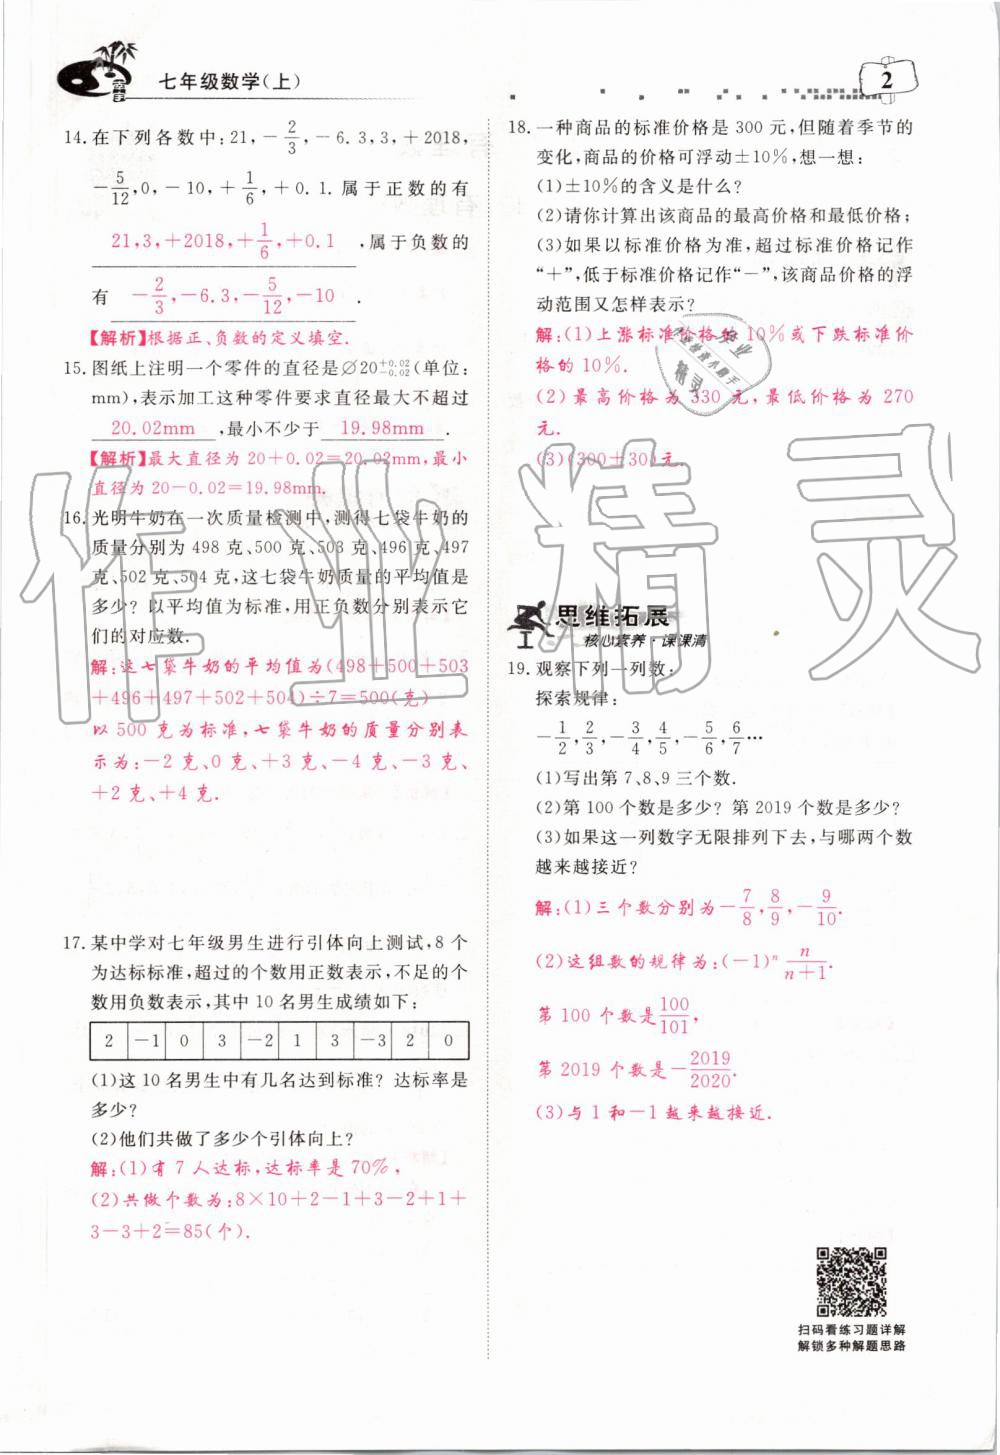 七年级数学(上)
2
14.在下列各数中:21,-2/3,-6.3,3,+2018,
-5/12,0,-10,+1/6,+0.1.属于正数的有
21,3,+2018,+1/6,+0.1,属于负数的
有 -2/3,-6.3,-5/12,-10.
【解析】根据正、负数的定义填空.
15.图纸上注明一个零件的直径是∅20+0.02-0.02(单位:
mm),表示加工这种零件要求直径最大不超过
20.02mm,最小不少于 19.98mm.
【解析】最大直径为20+0.02=20.02mm,最小
直径为20-0.02=19.98mm.
16.光明牛奶在一次质量检测中,测得七袋牛奶的
质量分别为498克、500克、503克、496克、497
克、502克、504克,这七袋牛奶质量的平均值是
多少?以平均值为标准,用正负数分别表示它
们的对应数.
解:这七袋牛奶的平均值为(498+500+503
+496+497+502+504)÷7=500(克)
以500克为标准,七袋牛奶的质量分别表
示为:-2克、0克、+3克、-4克、-3克、
+2克、+4克.
17.某中学对七年级男生进行引体向上测试,8个
为达标标准,超过的个数用正数表示,不足的个
数用负数表示,其中10名男生成绩如下:
2 -1 0 3 -2 1 3 -3 2 0
(1)这10名男生中有几名达到标准?达标率是
多少?
(2)他们共做了多少个引体向上?
解:(1)有7人达标,达标率是70%,
(2)共做个数为:8×10+2-1+3-2+1+
3-3+2=85(个).
18.一种商品的标准价格是300元,但随着季节的
变化,商品的价格可浮动±10%,想一想:
(1)±10%的含义是什么?
(2)请你计算出该商品的最高价格和最低价格;
(3)如果以标准价格为准,超过标准价格记作
“+”,低于标准价格记作“-”,该商品价格的浮
动范围又怎样表示?
解:(1)上涨标准价格的10%或下跌标准价
格的10%.
(2)最高价格为330元,最低价格为270
元.
(3)(300±30)元.
思维拓展
核心素养·课课清
19.观察下列一列数:
探索规律:
-1/2,2/3,-3/4,4/5,-5/6,6/7…
(1)写出第7、8、9三个数.
(2)第100个数是多少?第2019个数是多少?
(3)如果这一列数字无限排列下去,与哪两个数
越来越接近?
解:(1)三个数分别为-7/8,8/9,-9/10.
(2)这组数的规律为:(-1)ⁿ n/n+1.
第100个数是100/101,
第2019个数是-2019/2020.
(3)与1和-1越来越接近.
扫码看练习题详解
解锁多种解题思路
作业精灵